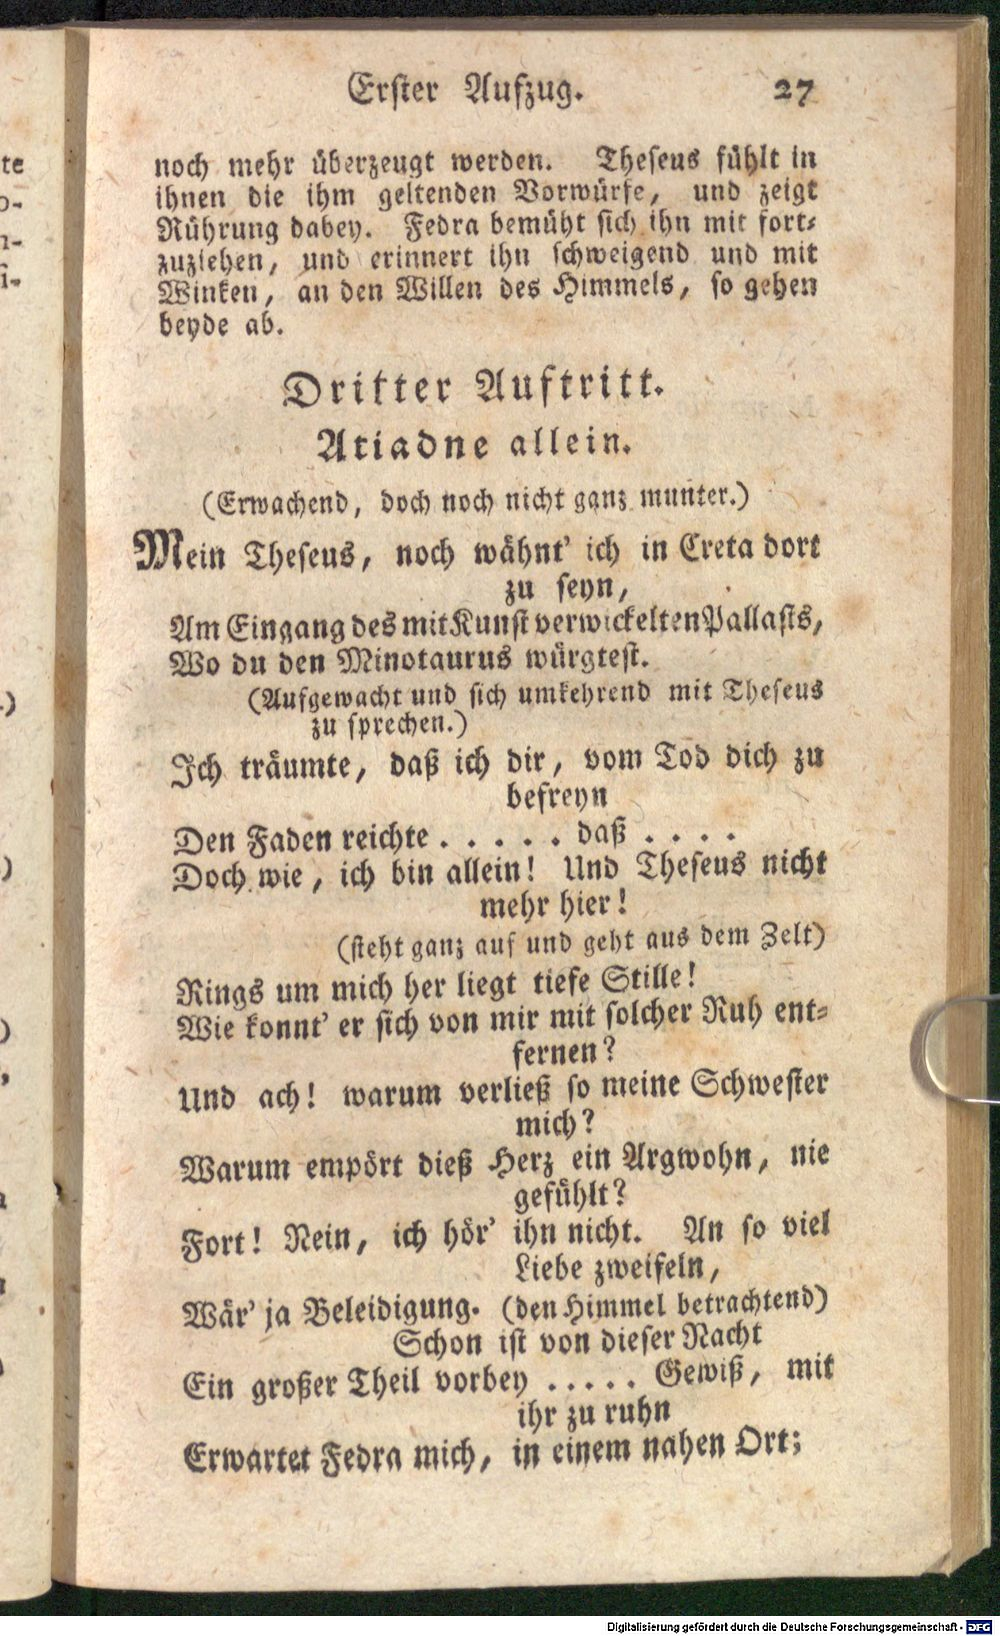 Erster Aufzug. 27
noch mehr überzeugt werden. Theseus fühlt in
ihnen die ihm geltenden Vorwürfe, und zeigt
Rührung dabey. Fedra bemüht sich ihn mit fort-
zuziehen, und erinnert ihn schweigend und mit
Winken, an den Willen des Himmels, so gehen
beyde ab.
Dritter Auftritt.
Ariadne allein.
(Erwachend, doch noch nicht ganz munter.)
Mein Theseus, noch wähnt' ich in Creta dort
zu seyn,
Am Eingang des mit Kunst verwickelten Pallasts,
Wo du den Minotaurus würgtest.
(Aufgewacht und sich umkehrend mit Theseus
zu sprechen.)
Ich träumte, daß ich dir, vom Tod dich zu
befreyn
Den Faden reichte . . . . . daß . . . .
Doch wie, ich bin allein! Und Theseus nicht
mehr hier!
(steht ganz auf und geht aus dem Zelt)
Rings um mich her liegt tiefe Stille!
Wie konnt' er sich von mir mit solcher Ruh ent-
fernen?
Und ach! warum verließ so meine Schwester
mich?
Warum empört dieß Herz ein Argwohn, nie
gefühlt?
Fort! Nein, ich hör' ihn nicht. An so viel
Liebe zweifeln,
Wär' ja Beleidigung. (den Himmel betrachtend)
Schon ist von dieser Nacht
Ein großer Theil vorbey . . . . . Gewiß, mit
ihr zu ruhn
Erwartet Fedra mich, in einem nahen Ort;
Digitalisierung gefördert durch die Deutsche Forschungsgemeinschaft - DFG